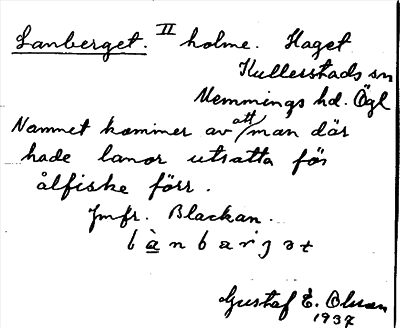 Lanberget. II holme. Haget
Kullerstads sn
Memmings hd. Ögl
Namnet kommer av att/man där
hade lanor utsatta för
ålfiske förr.
Jmfr. Blackan.
b à n b a r j ə t
Gustaf E. Olsson
1937